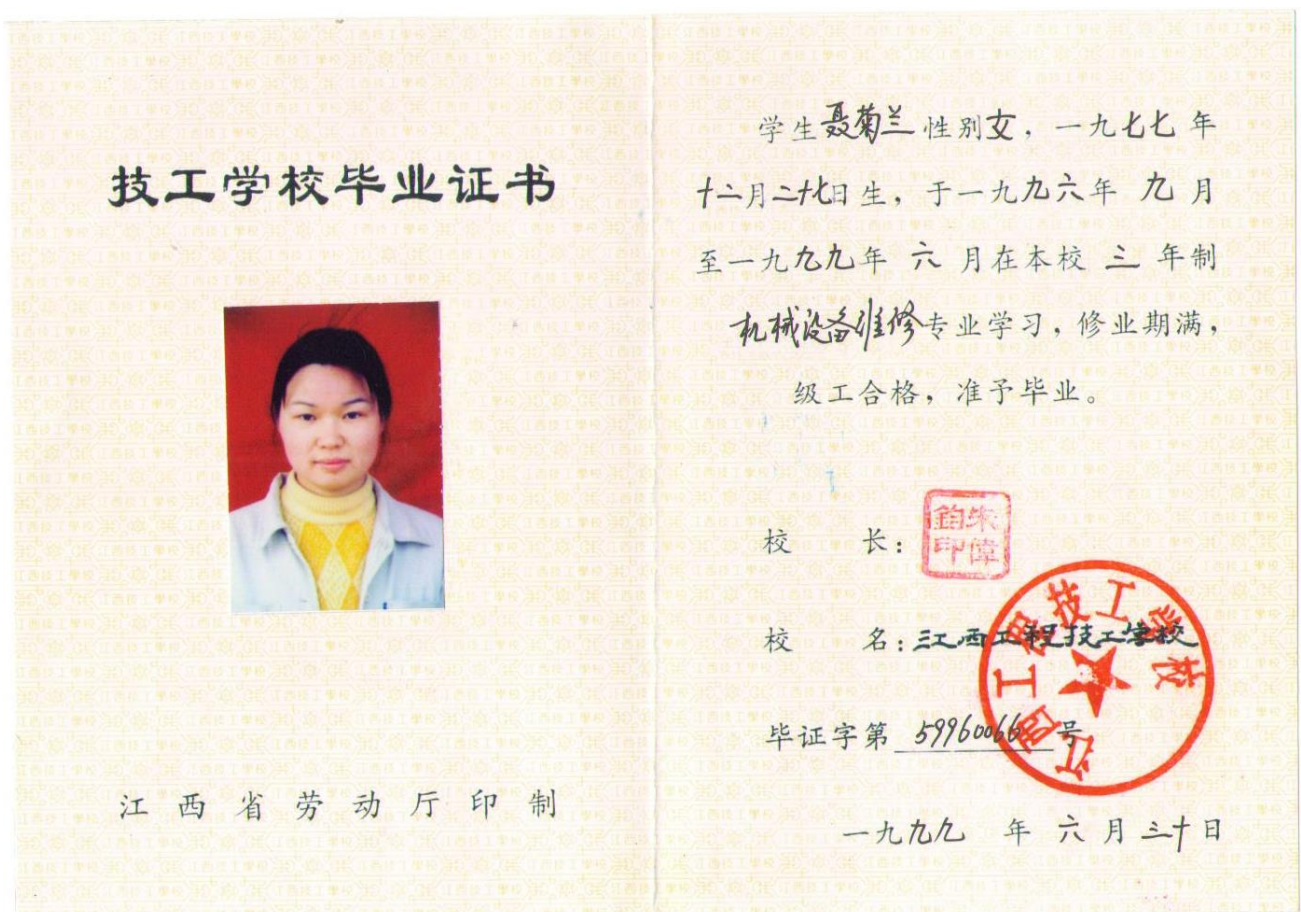 技工学校毕业证书
江西省劳动厅印制
学生聂菊兰性别女，一九七七年
十二月二十七日生，于一九九六年 九月
至一九九九年 六 月在本校 三 年制
机械设备维修专业学习，修业期满，
级工合格，准予毕业。
校 长：
朱伟钧印
校 名：江西工程技工学校
江西工程技工学校
毕证字第 59960066 号
一九九九 年 六 月 三十日